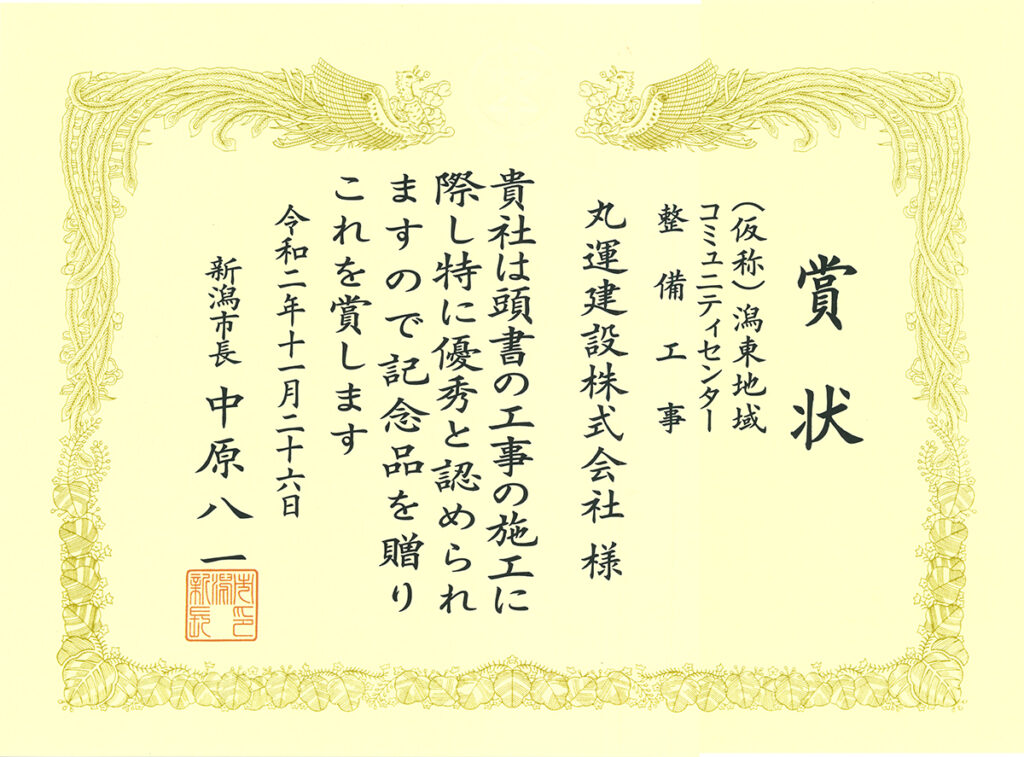 賞状
（仮称）潟東地域
コミュニティセンター
整備工事
丸運建設株式会社 様
貴社は頭書の工事の施工に
際し特に優秀と認められ
ますので記念品を贈り
これを賞します
令和二年十一月二十六日
新潟市長 中原八一
新潟市長印